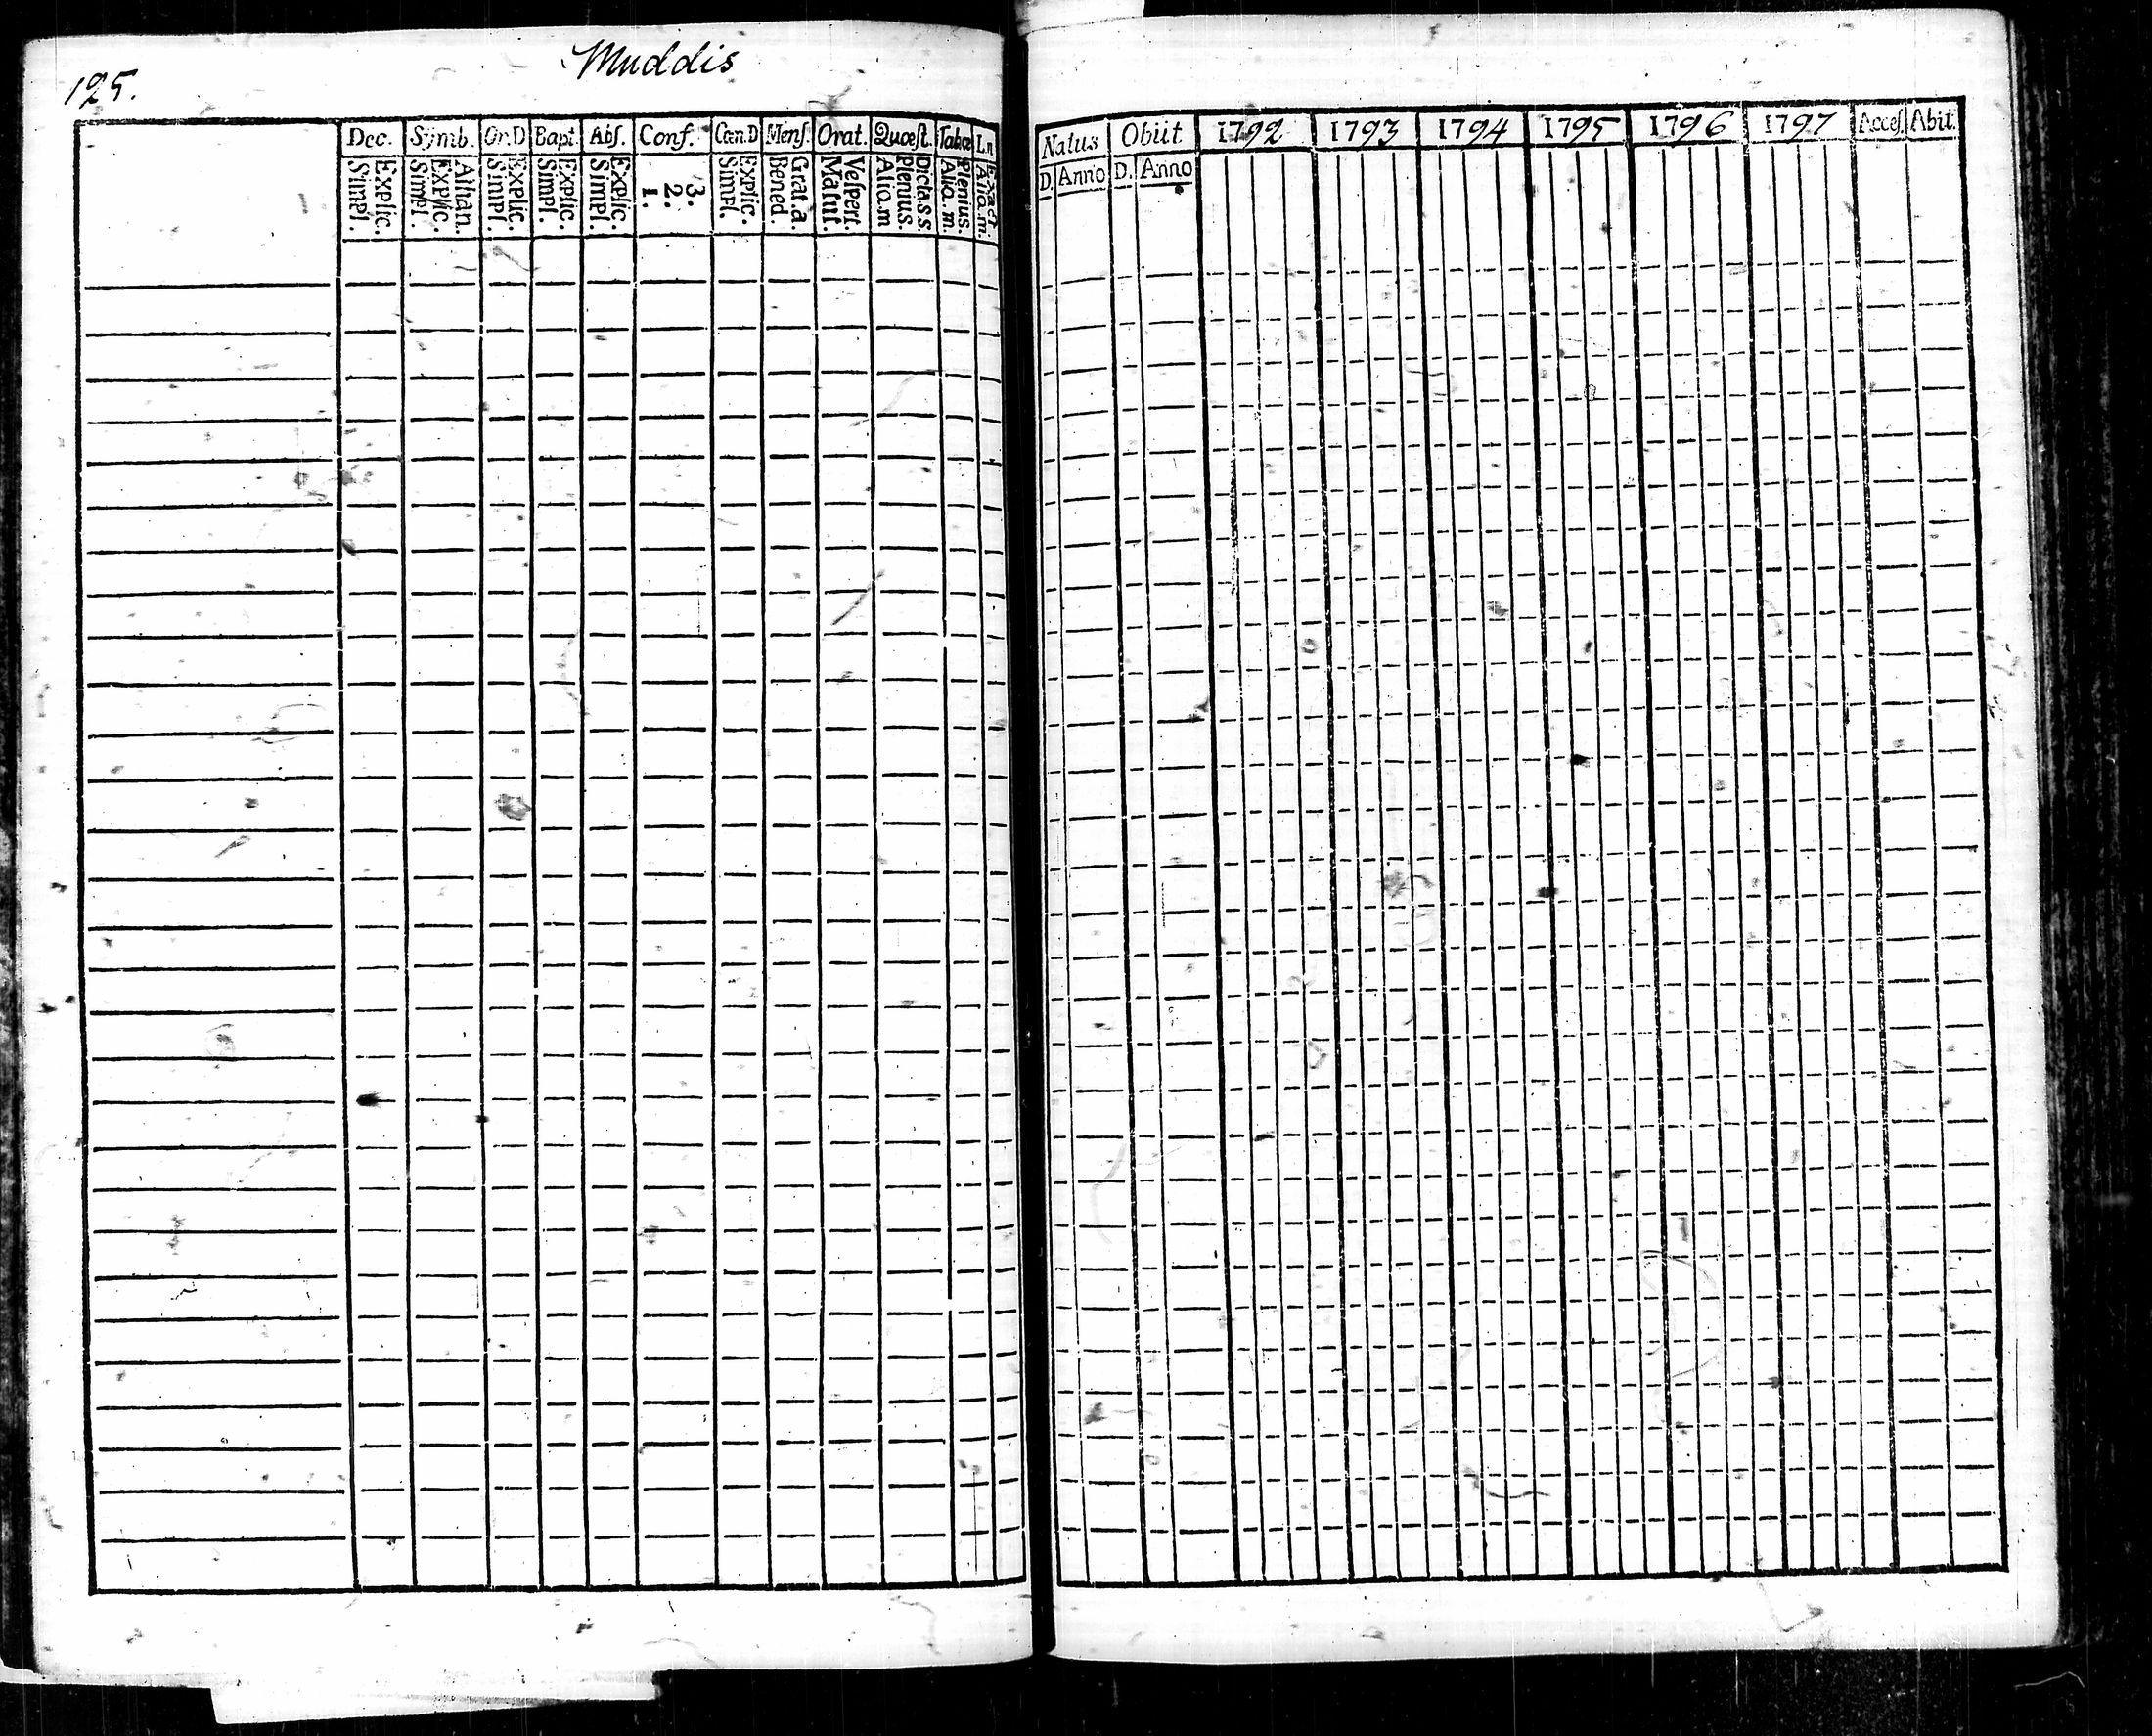 Muddis
125.
Dec. Symb. Or.D Bapt. Abſ. Conf. Cœn.D Menſ. Orat. Quœſt. Tabœ L.n
Explic. Simpl. Athan. Explic. Simpl. Explic. Simpl. Explic. Simpl. Explic. Simpl. 3. 2. 1. Explic. Simpl. Grat.a. Bened. Veſpert. Matut. Dicta.s.s. Plenius. Alio.m Plenius. Alio.m. Exact Alio.m.
Natus Obiit 1792 1793 1794 1795 1796 1797 Acceſ. Abit.
D. Anno D. Anno